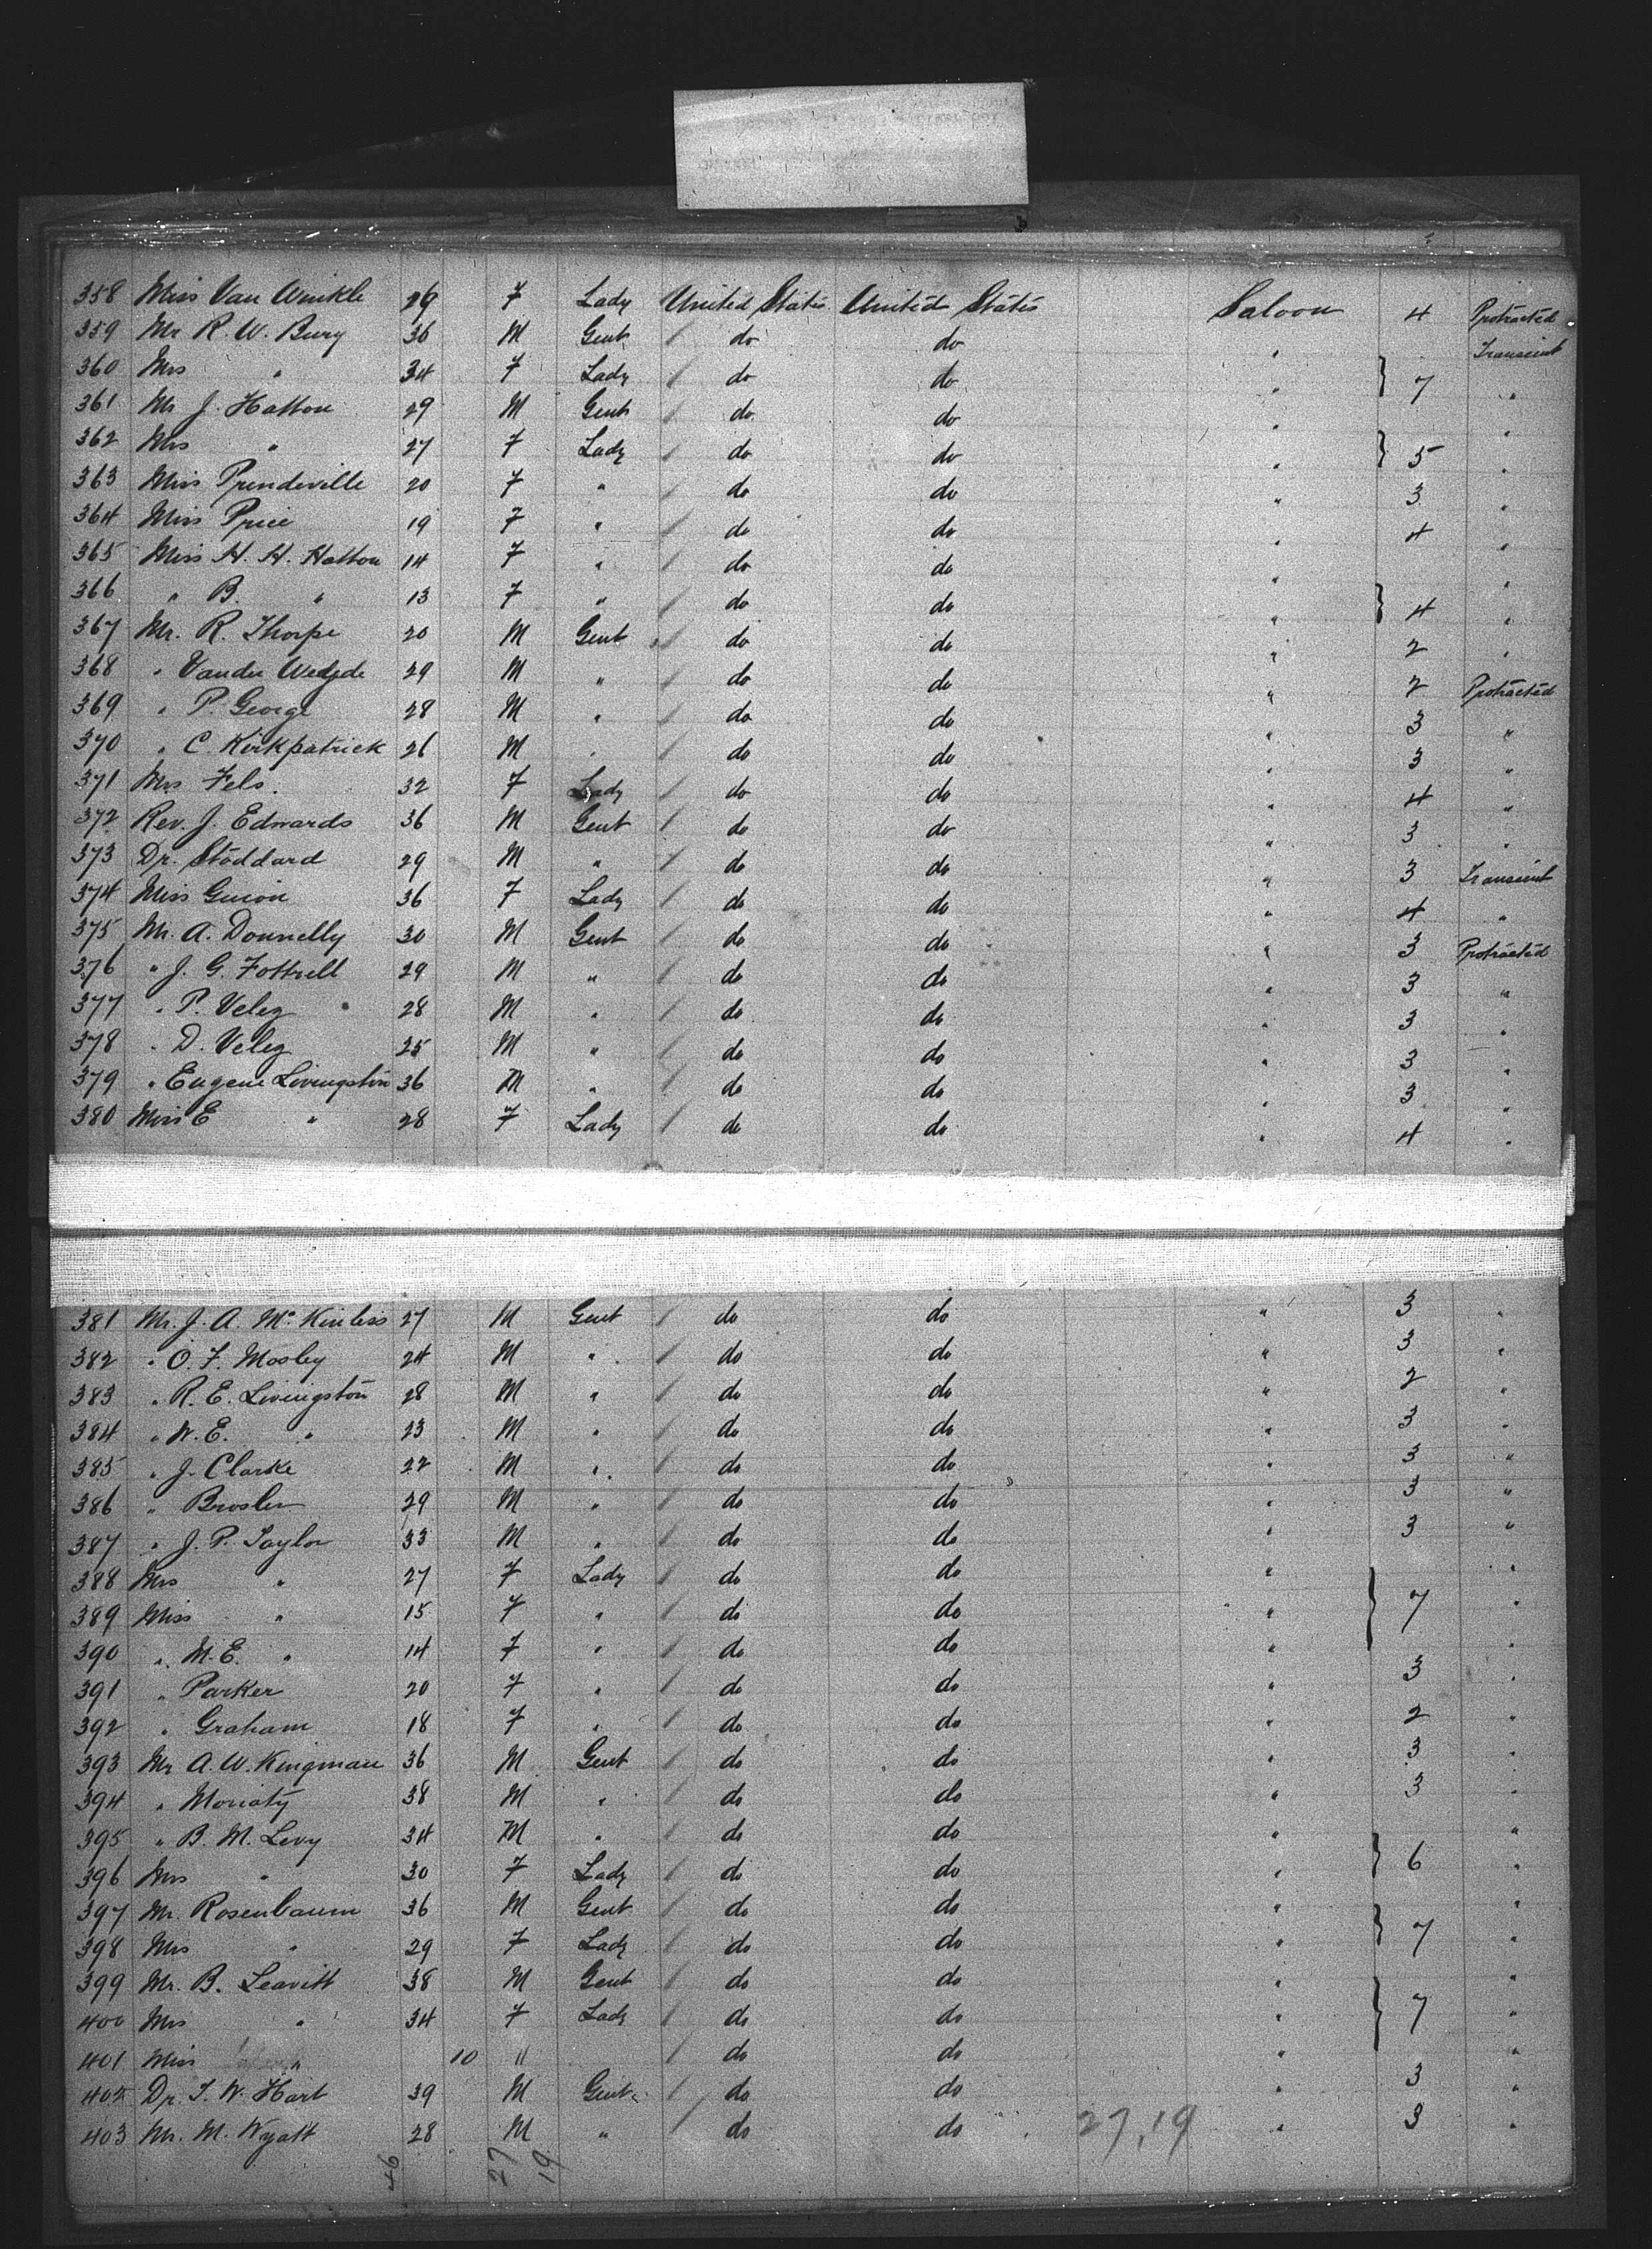 358 Miss Van Winkle 29 F Lady United States United States Saloon 4 Protracted
359 Mr R. W. Bury 36 M Gent do do " Transient
360 Mrs " 34 F Lady do do " } 7 "
361 Mr J. Hatton 29 M Gent do do " "
362 Mrs " 27 F Lady do do " } 5 "
363 Miss Prendeville 20 F " do do " 3 "
364 Miss Price 19 F " do do " 4 "
365 Miss H. H. Hatton 14 F " do do " "
366 " B. " 13 F " do do " } 4 "
367 Mr. R. Thorpe 20 M Gent do do " 2 "
368 " Vander 29 M " do do " 2 Protracted
369 " P. George 28 M " do do " 3 "
370 " C. Kirkpatrick 26 M " do do " 3 "
371 Mrs Fels. 32 F Lady do do " 4 "
372 Rev. J. Edwards 36 M Gent do do " 3 "
373 Dr. Stoddard 29 M " do do " 3 Transient
374 Miss Guion 36 F Lady do do " 4 "
375 Mr. A. Donnelly 30 M Gent do do " 3 Protracted
376 " J. G. Fottrell 29 M " do do " 3 "
377 " P. Velez 28 M " do do " 3 "
378 " D. Velez 25 M " do do " 3 "
379 " Eugene Livingston 36 M " do do " 3 "
380 Miss E " 28 F Lady do do " 4 "
381 Mr. J. A. Mc Kinless 27 M Gent do do " 3 "
382 " O. F. Mosley 24 M " do do " 3 "
383 " R. E. Livingston 28 M " do do " 2 "
384 " W. E. " 23 M " do do " 3 "
385 " J. Clarke 22 M " do do " 3 "
386 " Brosler 29 M " do do " 3 "
387 " J. P. Taylor 33 M " do do " 3 "
388 Mrs " 27 F Lady do do " "
389 Miss " 15 F " do do " } 7 "
390 " M. E. " 14 F " do do " "
391 " Parker 20 F " do do " 3 "
392 " Graham 18 F " do do " 2 "
393 Mr A. W. Kingman 36 M Gent do do " 3 "
394 " Moriaty 38 M " do do " 3 "
395 " B. M. Levy 34 M " do do " "
396 Mrs " 30 F Lady do do " } 6 "
397 Mr. Rosenbaum 36 M Gent do do " "
398 Mrs " 29 F Lady do do " } 7 "
399 Mr. B. Leavitt 38 M Gent do do " "
400 Mrs " 34 F Lady do do " } 7 "
401 Miss " 10 " do do " "
402 Dr. T. W. Hart 39 M Gent do do " 3 "
403 Mr. M. Wyatt 28 M " do do 27,19 " 3 "
46 27 19